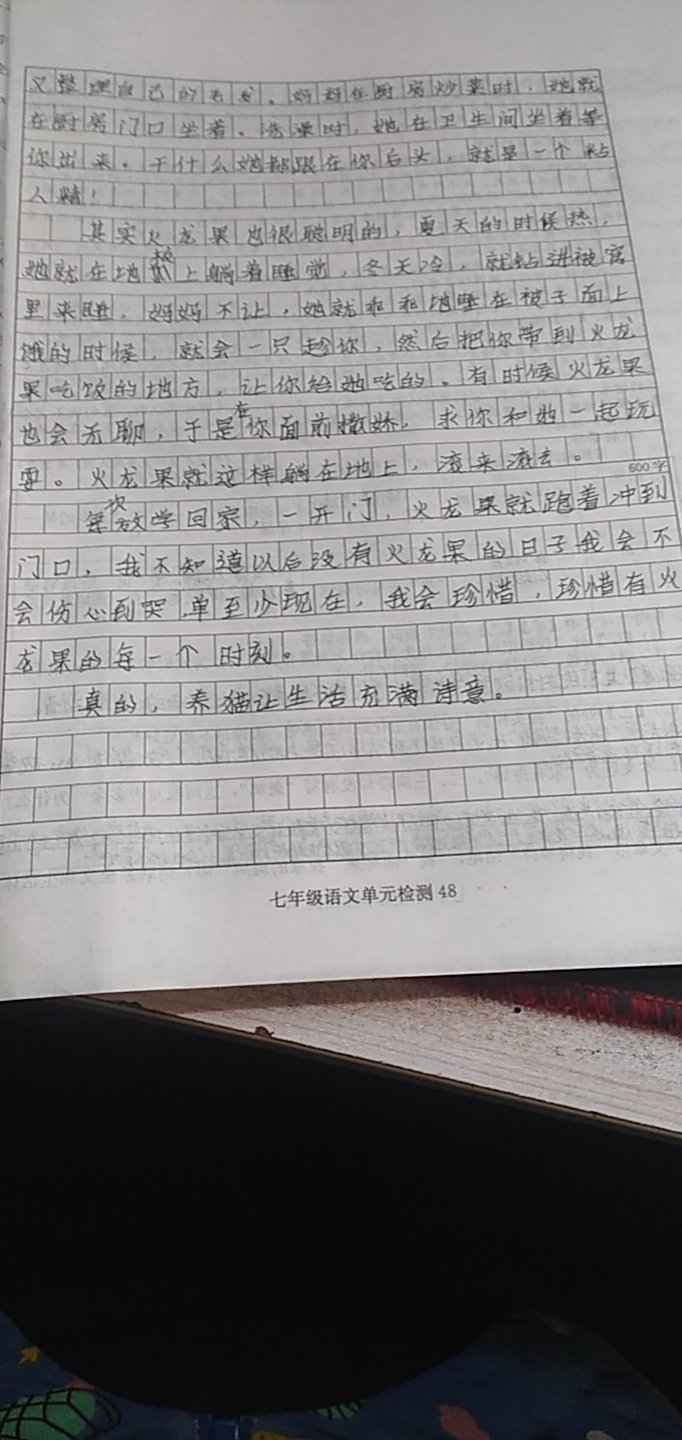 又整理自己的毛发。妈妈在厨房炒菜时，她就
在厨房门口坐着。洗澡时，她在卫生间坐着等
你出来。干什么她都跟在你后头，就是一个粘
人精！
其实火龙果也很聪明的，夏天的时候热，
她就在地板上躺着睡觉，冬天冷，就钻进被窝
里来睡，妈妈不让，她就乖乖地睡在被子面上
饿的时候，就会一只趁你，然后把你带到火龙
果吃饭的地方，让你给她吃的。有时候火龙果
也会无聊，于是在你面前撒娇，求你和她一起玩
耍。火龙果就这样躺在地上，滚来滚去。
600字
每次放学回家，一开门，火龙果就跑着冲到
门口，我不知道以后没有火龙果的日子我会不
会伤心到哭，单至少现在，我会珍惜，珍惜有火
龙果的每一个时刻。
真的，养猫让生活充满诗意。
七年级语文单元检测 48